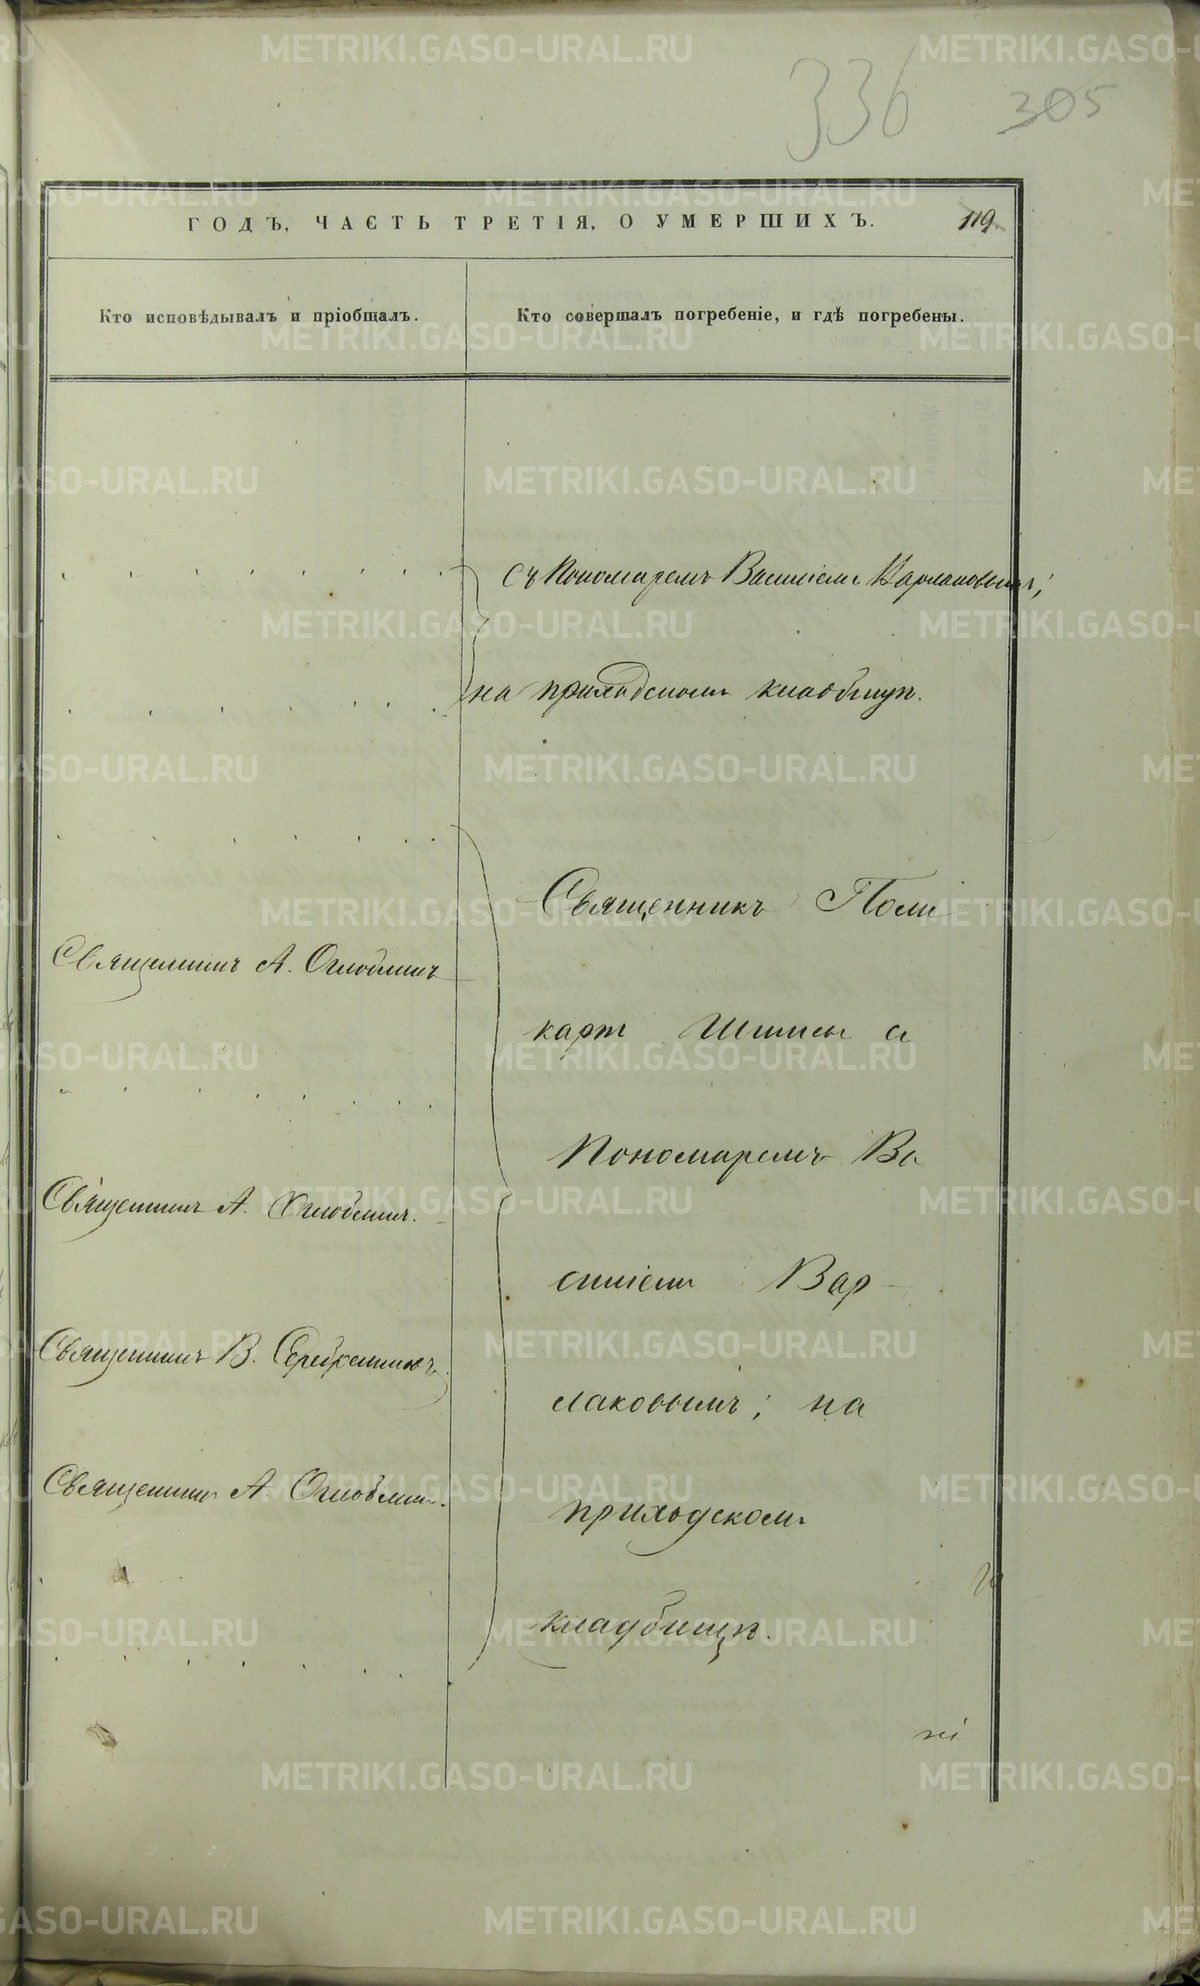 336 305
ГОДЪ, ЧАСТЬ ТРЕТІЯ, О УМЕРШИХЪ. 119.
Кто исповѣдывалъ и пріобщалъ.
Кто совершалъ погребеніе, и гдѣ погребены.
съ Пономаремъ Василіемъ Варлаковымъ;
на приходскомъ кладбищѣ.
Священникъ А. Оглоблинъ
Священникъ А. Оглоблинъ.
Священникъ В. Серебренниковъ.
Священникъ А. Оглоблинъ.
Священникъ Поли
карпъ съ
Пономаремъ Ва
силіемъ Вар
лаковымъ; на
приходскомъ
кладбищѣ.
METRIKI.GASO-URAL.RU